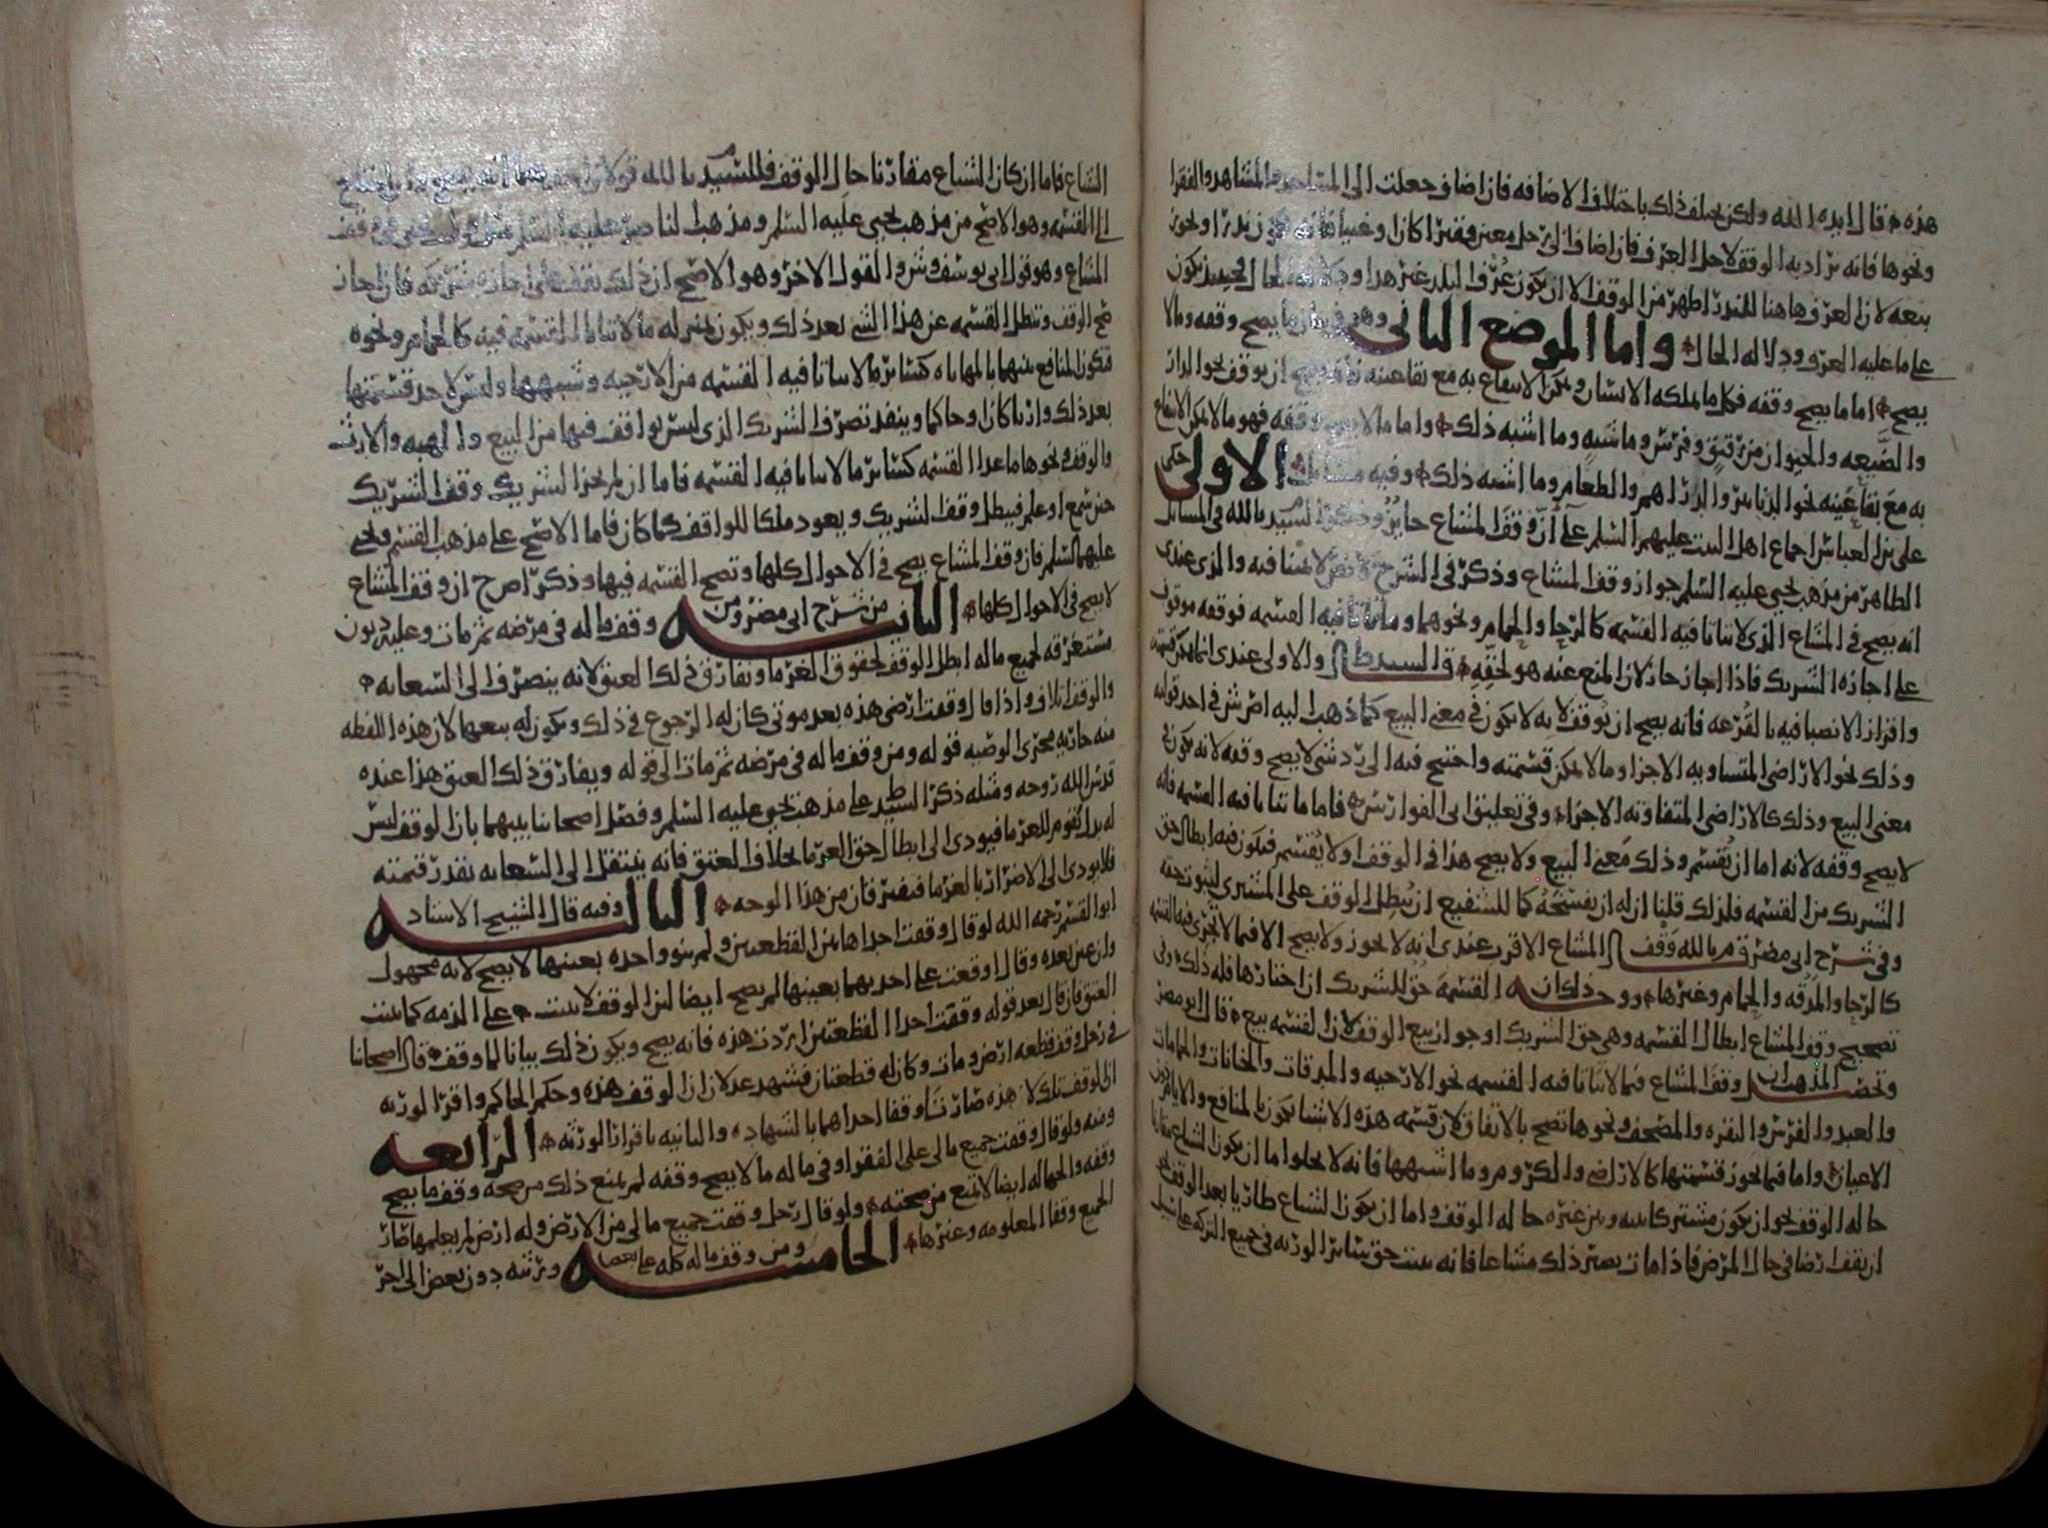 هذه قال ايده الله ولكن يختلف ذلك باختلاف الاضافه فان اضاف وجعلت الى المساجد والمشاهد والفقرا
ونحوها فانه يراد به الوقف لاجل العرف فان اضاف الى رجل معين وفقيرا كان او غنيا فانه يكون نذرا ويجوز
بيعه لان العرف هاهنا للنذر اظهر من الوقف الا ان يكون عرف البلد غير هذا
على ما عليه العرف ودلاله الحال واما الموضع الثاني وهو في بيان ما يصح وقفه وما لا
يصح اما ما يصح وقفه فكل ما يملكه الانسان ويمكن الانتفاع به مع بقا عينه ان يوقف نحو الدار
والضيعه والحيوان من رقيق وفرس وماشيه وما اشبه ذلك واما ما لا يصح وقفه فهو ما لا يمكن الانتفاع
به مع بقا عينه نحو الدنانير والدراهم والطعام وما اشبه ذلك وفيه مسائل الاولى حكى
على بن العباس اجماع اهل البيت عليهم السلم على ان وقف المشاع جايز وذكر السيد م بالله في المسائل
الظاهر من مذهب يحيى عليه السلم جواز وقف المشاع وذكر في الشرح والذي عندي
انه يصح في المشاع الذي لا يتاتا فيه القسمه كالرحا والحمام ونحوهما وما يتاتا فيه القسمه فوقفه موقوف
على اجازه الشريك فاذا اجاز جاز لان المنع عنه هو لحقه قال السيد ط والاولى عندي انما يمكن قسمته
وافراز الانصبا فيه بالقرعه فانه يصح ان يوقف لانه لا يكون في معنى البيع كما ذهب اليه اصرش في احد قوليه
وذلك نحو الاراضي المتساويه الاجزا وما لا يمكن قسمته واحتيج فيه الى رد شي لا يصح وقفه لانه يكون في
معنى البيع وذلك كالاراضي المتفاوته الاجزاء وفي تعليق ابي الفوارس فاما ما يتاتا فيه القسمه فانه
لا يصح وقفه لانه اما ان يقسم وذلك معنى البيع ولا يصح هذا في الوقف او لا يقسم فيكون فيه ابطال حق
الشريك من القسمه فلذلك قلنا ان له ان يفسخه كما للشفيع ان يبطل الوقف على المشتري لثبوت حقه
وفي شرح ابي مضر ق م بالله وقف المشاع الاقرب عندي انه لا يجوز ولا يصح الا فيما لا تجري فيه القسمه
كالرحا والمدقه والحمام وغيرها ووجه ذلك ان القسمه حق للشريك ان اختارها فله ذلك وفي
تصحيح وقف المشاع ابطال القسمه وهي حق الشريك او جواز بيع الوقف لان القسمه بيع قال ابو مضر
وتحصيل المذهب ان وقف المشاع فيما لا يتاتا فيه القسمه نحو الارحيه والمدقات والخانات والحمامات
والعبد والفرس والبقره والمصحف ونحوها تصح بالاتفاق لان قسمه هذه الاشيا يجوز بالمنافع والايام دون
الاعيان واما فيما يجوز قسمتها كالاراضي والكروم وما اشبهها فانه لا يخلوا اما ان يكون الشياع مقارنا
حاله الوقف نحو ان يكون مشتركا بينه وبين غيره حاله الوقف واما ان يكون الشياع طاريا بعد الوقف نحو
ان يقف ارضا في حال المرض فاذا مات يصير ذلك مشاعا فانه يثبت حق سائر الورثه في جميع التركه على سبيل
الشياع فاما ان كان الشياع مقارنا حال الوقف فللسيد م بالله قولان احدهما انه يصح
الى القسمه وهو الاصح من مذهب يحيى عليه السلم ومذهب الناصر عليه السلم
المشاع وهو قول ابي يوسف وش والقول الاخر وهو الاصح ان ذلك يقف على اجازه شريكه فان اجاز
صح الوقف وتبطل القسمه عن هذا الشي بعد ذلك ويكون بمنزله ما لا يتاتا القسمه فيه كالحمام ونحوه
فتكون المنافع بينهما بالمهاياه كسائر ما لا يتاتا فيه القسمه من الارحيه وشبهها وليس لاحد قسمتها
بعد ذلك وان كان وحاكما وينفذ تصرف الشريك الذي ليس بواقف فيها من البيع والهبه والارث
والوقف ونحوها ما عدا القسمه كسائر ما لا يتاتا فيه القسمه فاما ان لم يجز الشريك وقف الشريك
حين سمع او علم فيبطل وقف الشريك ويعود ملكا للواقف كما كان فاما الاصح على مذهب القسم ويحيى
عليهما السلم فان وقف المشاع يصح في الاحوال كلها وتصح القسمه فيها وذكر اصرح ان وقف المشاع
لا يصح في الاحوال كلها الثانيه من شرح ابي مضر ومن وقف ماله في مرضه ثم مات وعليه ديون
مستغرقه لجميع ماله ابطل الوقف لحقوق الغرما ويفارق ذلك العتق لانه ينصرف الى السعايه
والوقف اتلاف واذا قال وقفت ارضي هذه بعد موتي كان له الرجوع في ذلك ويكون له بيعهما لان هذه اللفظه
منه جاريه مجرى الوصيه قوله ومن وقف ماله في مرضه ثم مات الى قوله ويفارق ذلك العتق هذا عنده
قدس الله روحه ومثله ذكر السيد ط على مذهب يحيى عليه السلم وفصل اصحابنا بينهما بان الوقف ليس
له بدل يقوم للغرما فيودي الى ابطال حق الغرما بخلاف العتق فانه ينتقل الى السعايه بقدر قيمته
فلا يودي الى الاضرار بالغرما فيفترقان من هذا الوجه الثالثه وفيه قال الشيخ الاستاد
ابو القسم رحمه الله لو قال وقفت احدا هاتين القطعتين ولم ينو واحده بعينها لا يصح لانه مجهول
وان عين بعده وقال اوقعت على احديهما بعينها لم يصح ايضا لان الوقف لا يثبت على الذمه كما يثبت
العتق فان قال بعد قوله وقفت احدا القطعتين اردت هذه فانه يصح ويكون ذلك بيانا لما وقف قال اصحابنا
في رجل وقف قطعه ارض ومات وكان له قطعتان فشهد عدلان ان الوقف هذه وحكم الحاكم واقر الورثه
ان الوقف تلك لا هذه صارتا وقفا احداهما بالشهاده والثانيه باقرار الورثه الرابعه
ومنه ولو قال وقفت جميع مالي على الفقرا وفي ماله ما لا يصح وقفه لم يمنع ذلك من صحه وقف ما يصح
وقفه والجهاله ايضا لا تمنع من صحته ولو قال رجل وقفت جميع مالي من الارض وله ارض لم يعلمها صار
الجميع وقفا المعلومه وغيرها الخامسه ومن وقف ماله كله على بعض ورثته دون بعض الى اخر